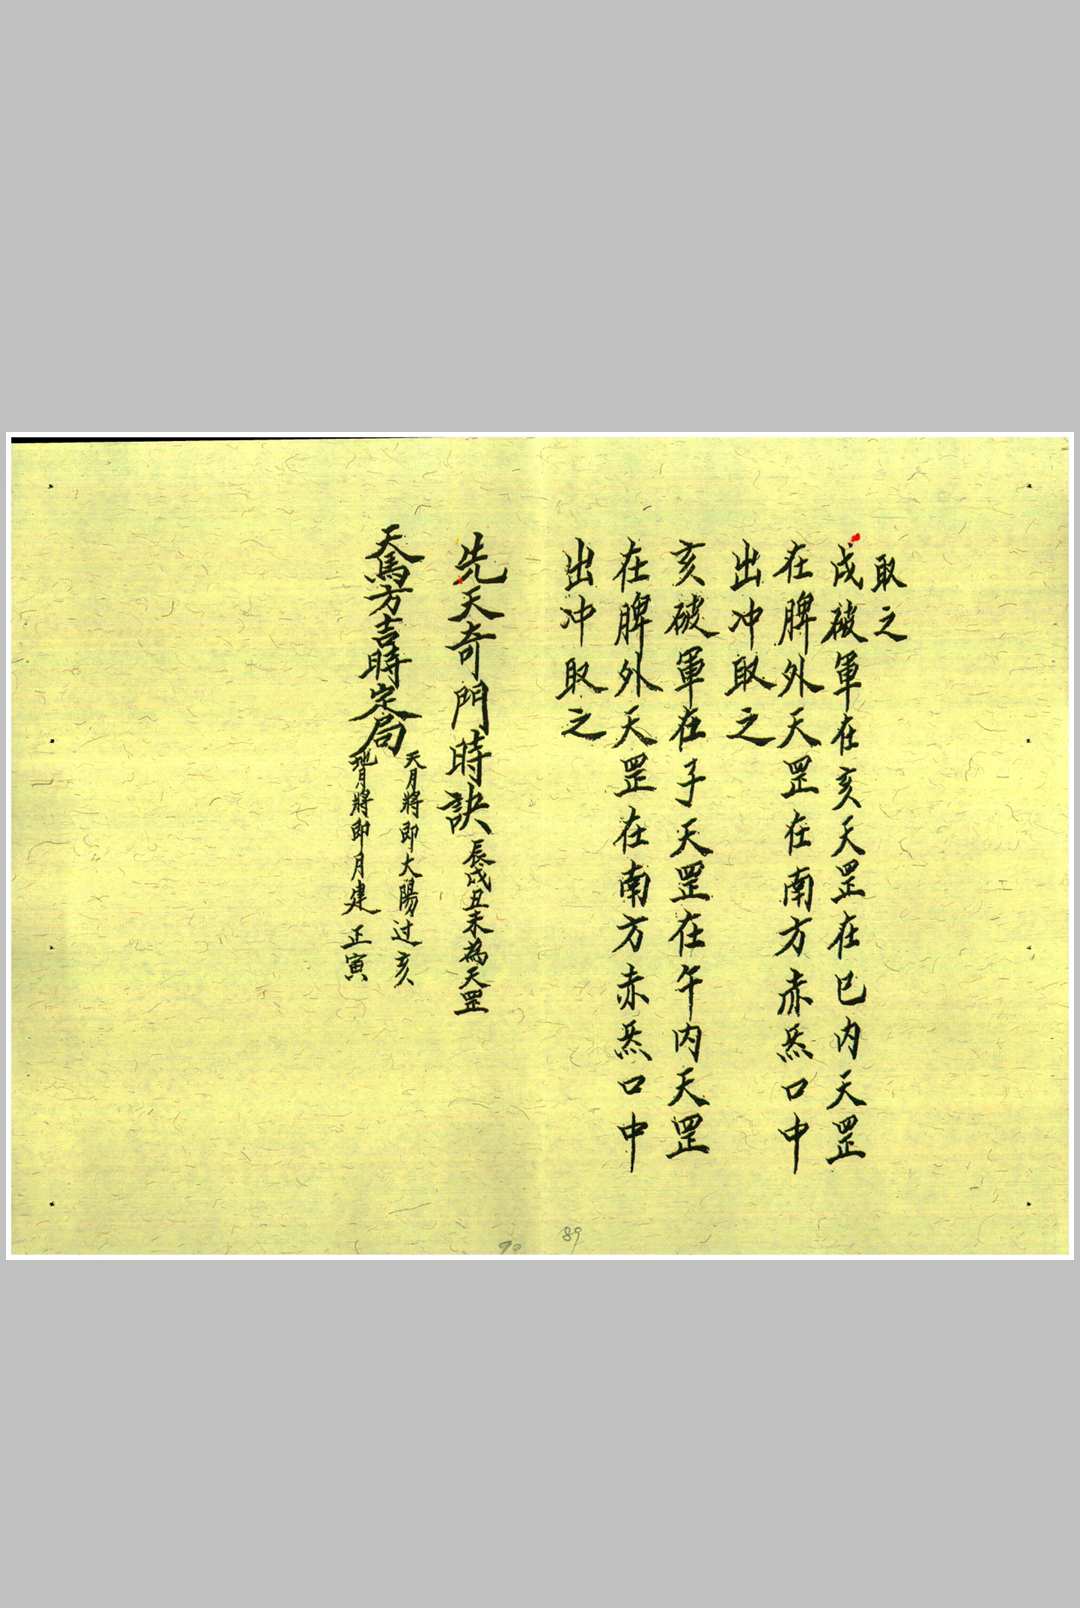 取之
戌破軍在亥天罡在巳内天罡
在脾外天罡在南方赤炁口中
出冲取之
亥破軍在子天罡在午内天罡
在脾外天罡在南方赤炁口中
出冲取之
先天奇門時訣 辰戌丑未為天罡
天馬方吉時定局 天月將即大陽过亥
地月將即月建正寅
89
90